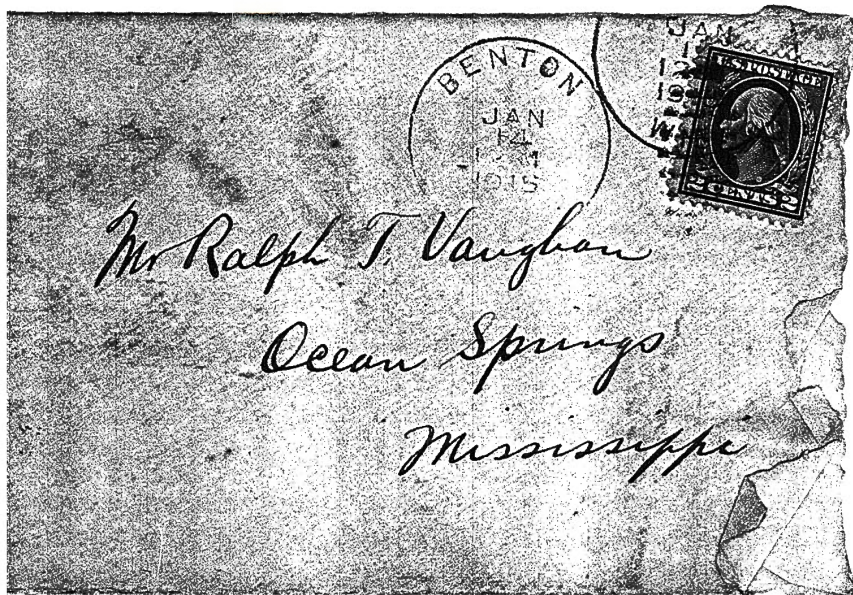 BENTON
JAN
14
1915
JAN
U.S. POSTAGE
2 CENTS 2
Mr Ralph T. Vaughan
Ocean Springs
Mississippi